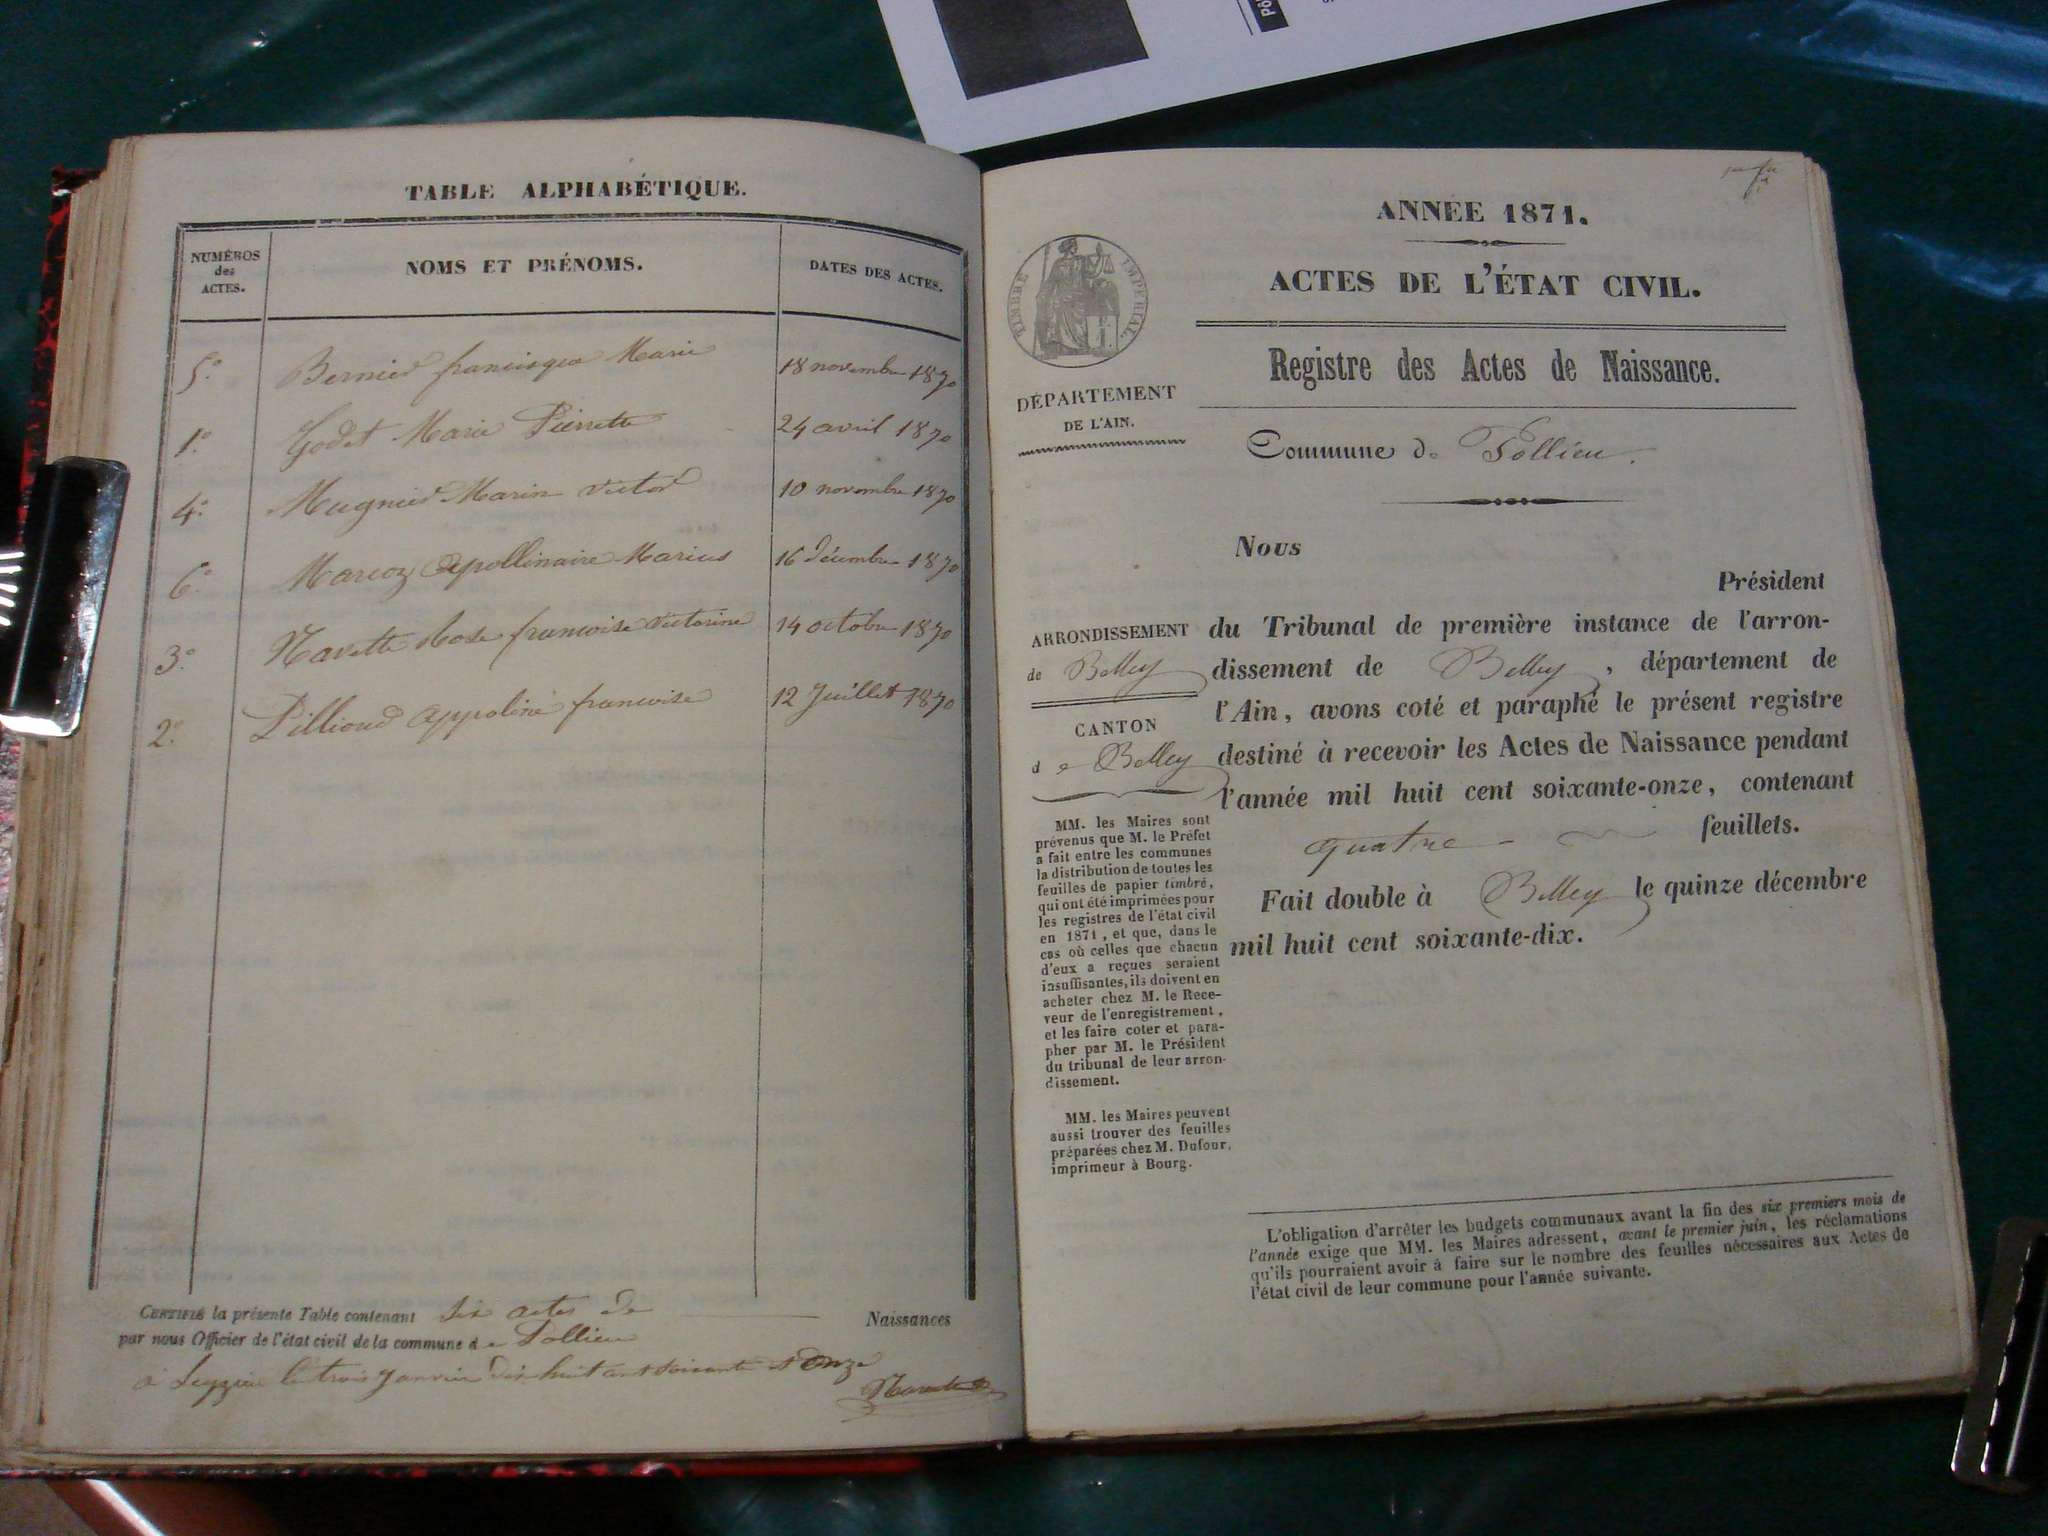 TABLE ALPHABÉTIQUE.
NUMÉROS
des
ACTES.
NOMS ET PRÉNOMS.
DATES DES ACTES.
5° Bernier francisque Marie 18 novembre 1870
1° Godet Marie Pierrette 24 avril 1870
4° Mugnier Marin victor 10 novembre 1870
6° Marcoz Apollinaire Marius 16 décembre 1870
3° Navette Rose francoise victorine 14 octobre 1870
2° Pillioud Appoline francoise 12 Juillet 1870
CERTIFIÉ la présente Table contenant six actes de Naissances
par nous Officier de l'état civil de la commune de Pollieu
à le trois Janvier dix huit cent soixante et onze
ANNÉE 1871.
ACTES DE L'ÉTAT CIVIL.
TIMBRE IMPERIAL.
Registre des Actes de Naissance.
DÉPARTEMENT
DE L'AIN.
Commune de Pollieu.
Nous
Président
ARRONDISSEMENT
de Belley
CANTON
de Belley
du Tribunal de première instance de l'arron-
dissement de Belley, département de
l'Ain, avons coté et paraphé le présent registre
destiné à recevoir les Actes de Naissance pendant
l'année mil huit cent soixante-onze, contenant
quatre feuillets.
Fait double à Belley le quinze décembre
mil huit cent soixante-dix.
MM. les Maires sont
prévenus que M. le Préfet
a fait entre les communes
la distribution de toutes les
feuilles de papier timbré,
qui ont été imprimées pour
les registres de l'état civil
en 1871, et que, dans le
cas où celles que chacun
d'eux a reçues seraient
insuffisantes, ils doivent en
acheter chez M. le Rece-
veur de l'enregistrement,
et les faire coter et para-
pher par M. le Président
du tribunal de leur arron-
dissement.
MM. les Maires peuvent
aussi trouver des feuilles
préparées chez M. Dufour,
imprimeur à Bourg.
L'obligation d'arrêter les budgets communaux avant la fin des six premiers mois de
l'année exige que MM. les Maires adressent, avant le premier juin, les réclamations
qu'ils pourraient avoir à faire sur le nombre des feuilles nécessaires aux Actes de
l'état civil de leur commune pour l'année suivante.